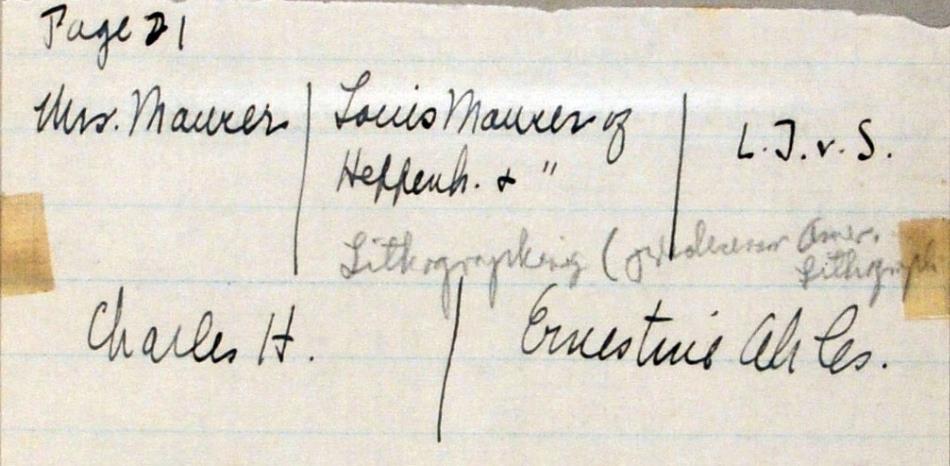 Page 21
Mrs. Maurer | Louis Maurer of | L. J. v. S.
Heppenh. & "
Lithographing ( Amer.
Lithograph
Charles H. | Ernestine Ahles.